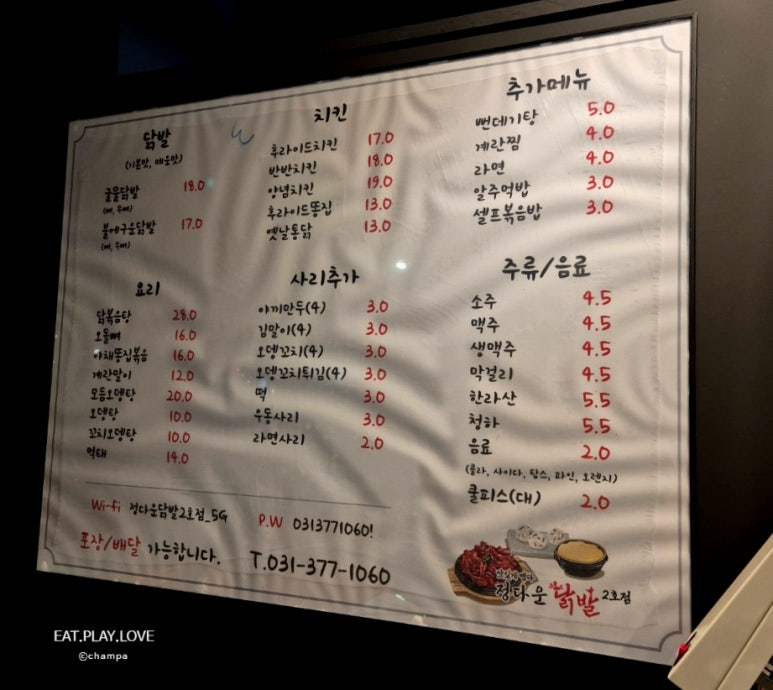 닭발
(기본맛, 매운맛)
국물닭발 18.0
(뼈, 무뼈)
불에구운닭발 17.0
(뼈, 무뼈)
치킨
후라이드치킨 17.0
반반치킨 18.0
양념치킨 19.0
후라이드똥집 13.0
옛날통닭 13.0
추가메뉴
뻔데기탕 5.0
계란찜 4.0
라면 4.0
알주먹밥 3.0
셀프볶음밥 3.0
요리
닭볶음탕 28.0
오돌뼈 16.0
야채똥집볶음 16.0
계란말이 12.0
모듬오뎅탕 20.0
오뎅탕 10.0
꼬치오뎅탕 10.0
먹태 14.0
사리추가
야끼만두(4) 3.0
김말이(4) 3.0
오뎅꼬치(4) 3.0
오뎅꼬치튀김(4) 3.0
떡 3.0
우동사리 3.0
라면사리 2.0
주류/음료
소주 4.5
맥주 4.5
생맥주 4.5
막걸리 4.5
한라산 5.5
청하 5.5
음료 2.0
(콜라, 사이다, 탐스, 파인, 오렌지)
쿨피스(대) 2.0
Wi-fi 정다운닭발2호점_5G P.W 0313771060!
포장/배달 가능합니다. T.031-377-1060
정다운 닭발 2호점
EAT.PLAY.LOVE
©champa